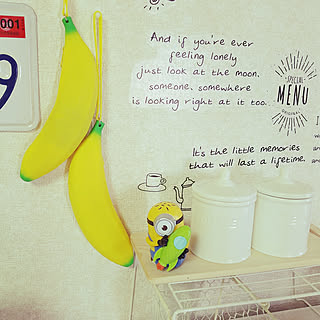 001
9
And if you're ever
feeling lonely
just look at the moon.
someone, somewhere
is looking right at it too.
SPECIAL
MENU
It's the little memories
that will last a lifetime.